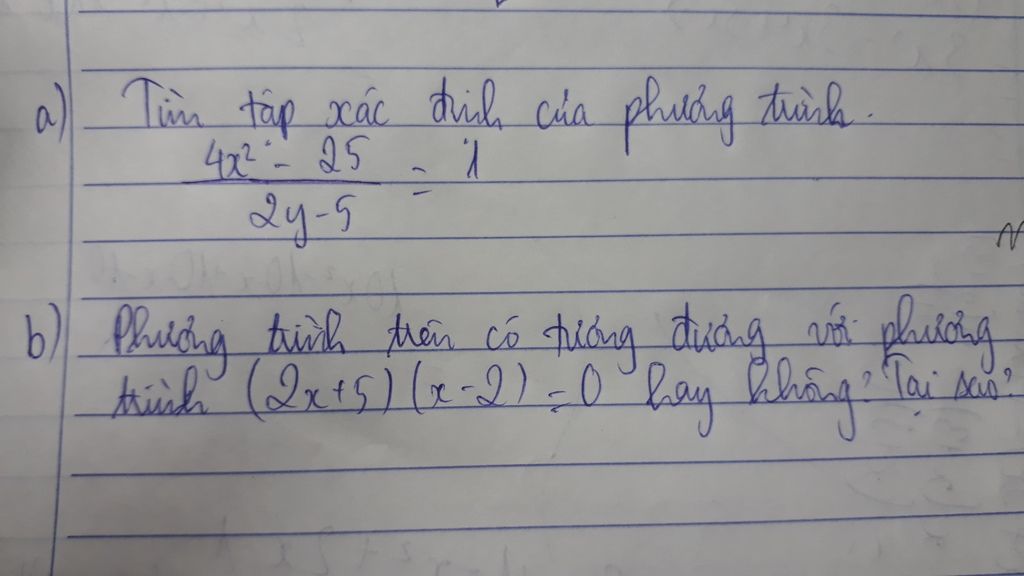 a) Tìm tập xác định của phương trình.
4x² - 25
———— = 1
2y - 5
b) Phương trình trên có tương đương với phương
trình (2x+5)(x-2) = 0 hay không? Tại sao?